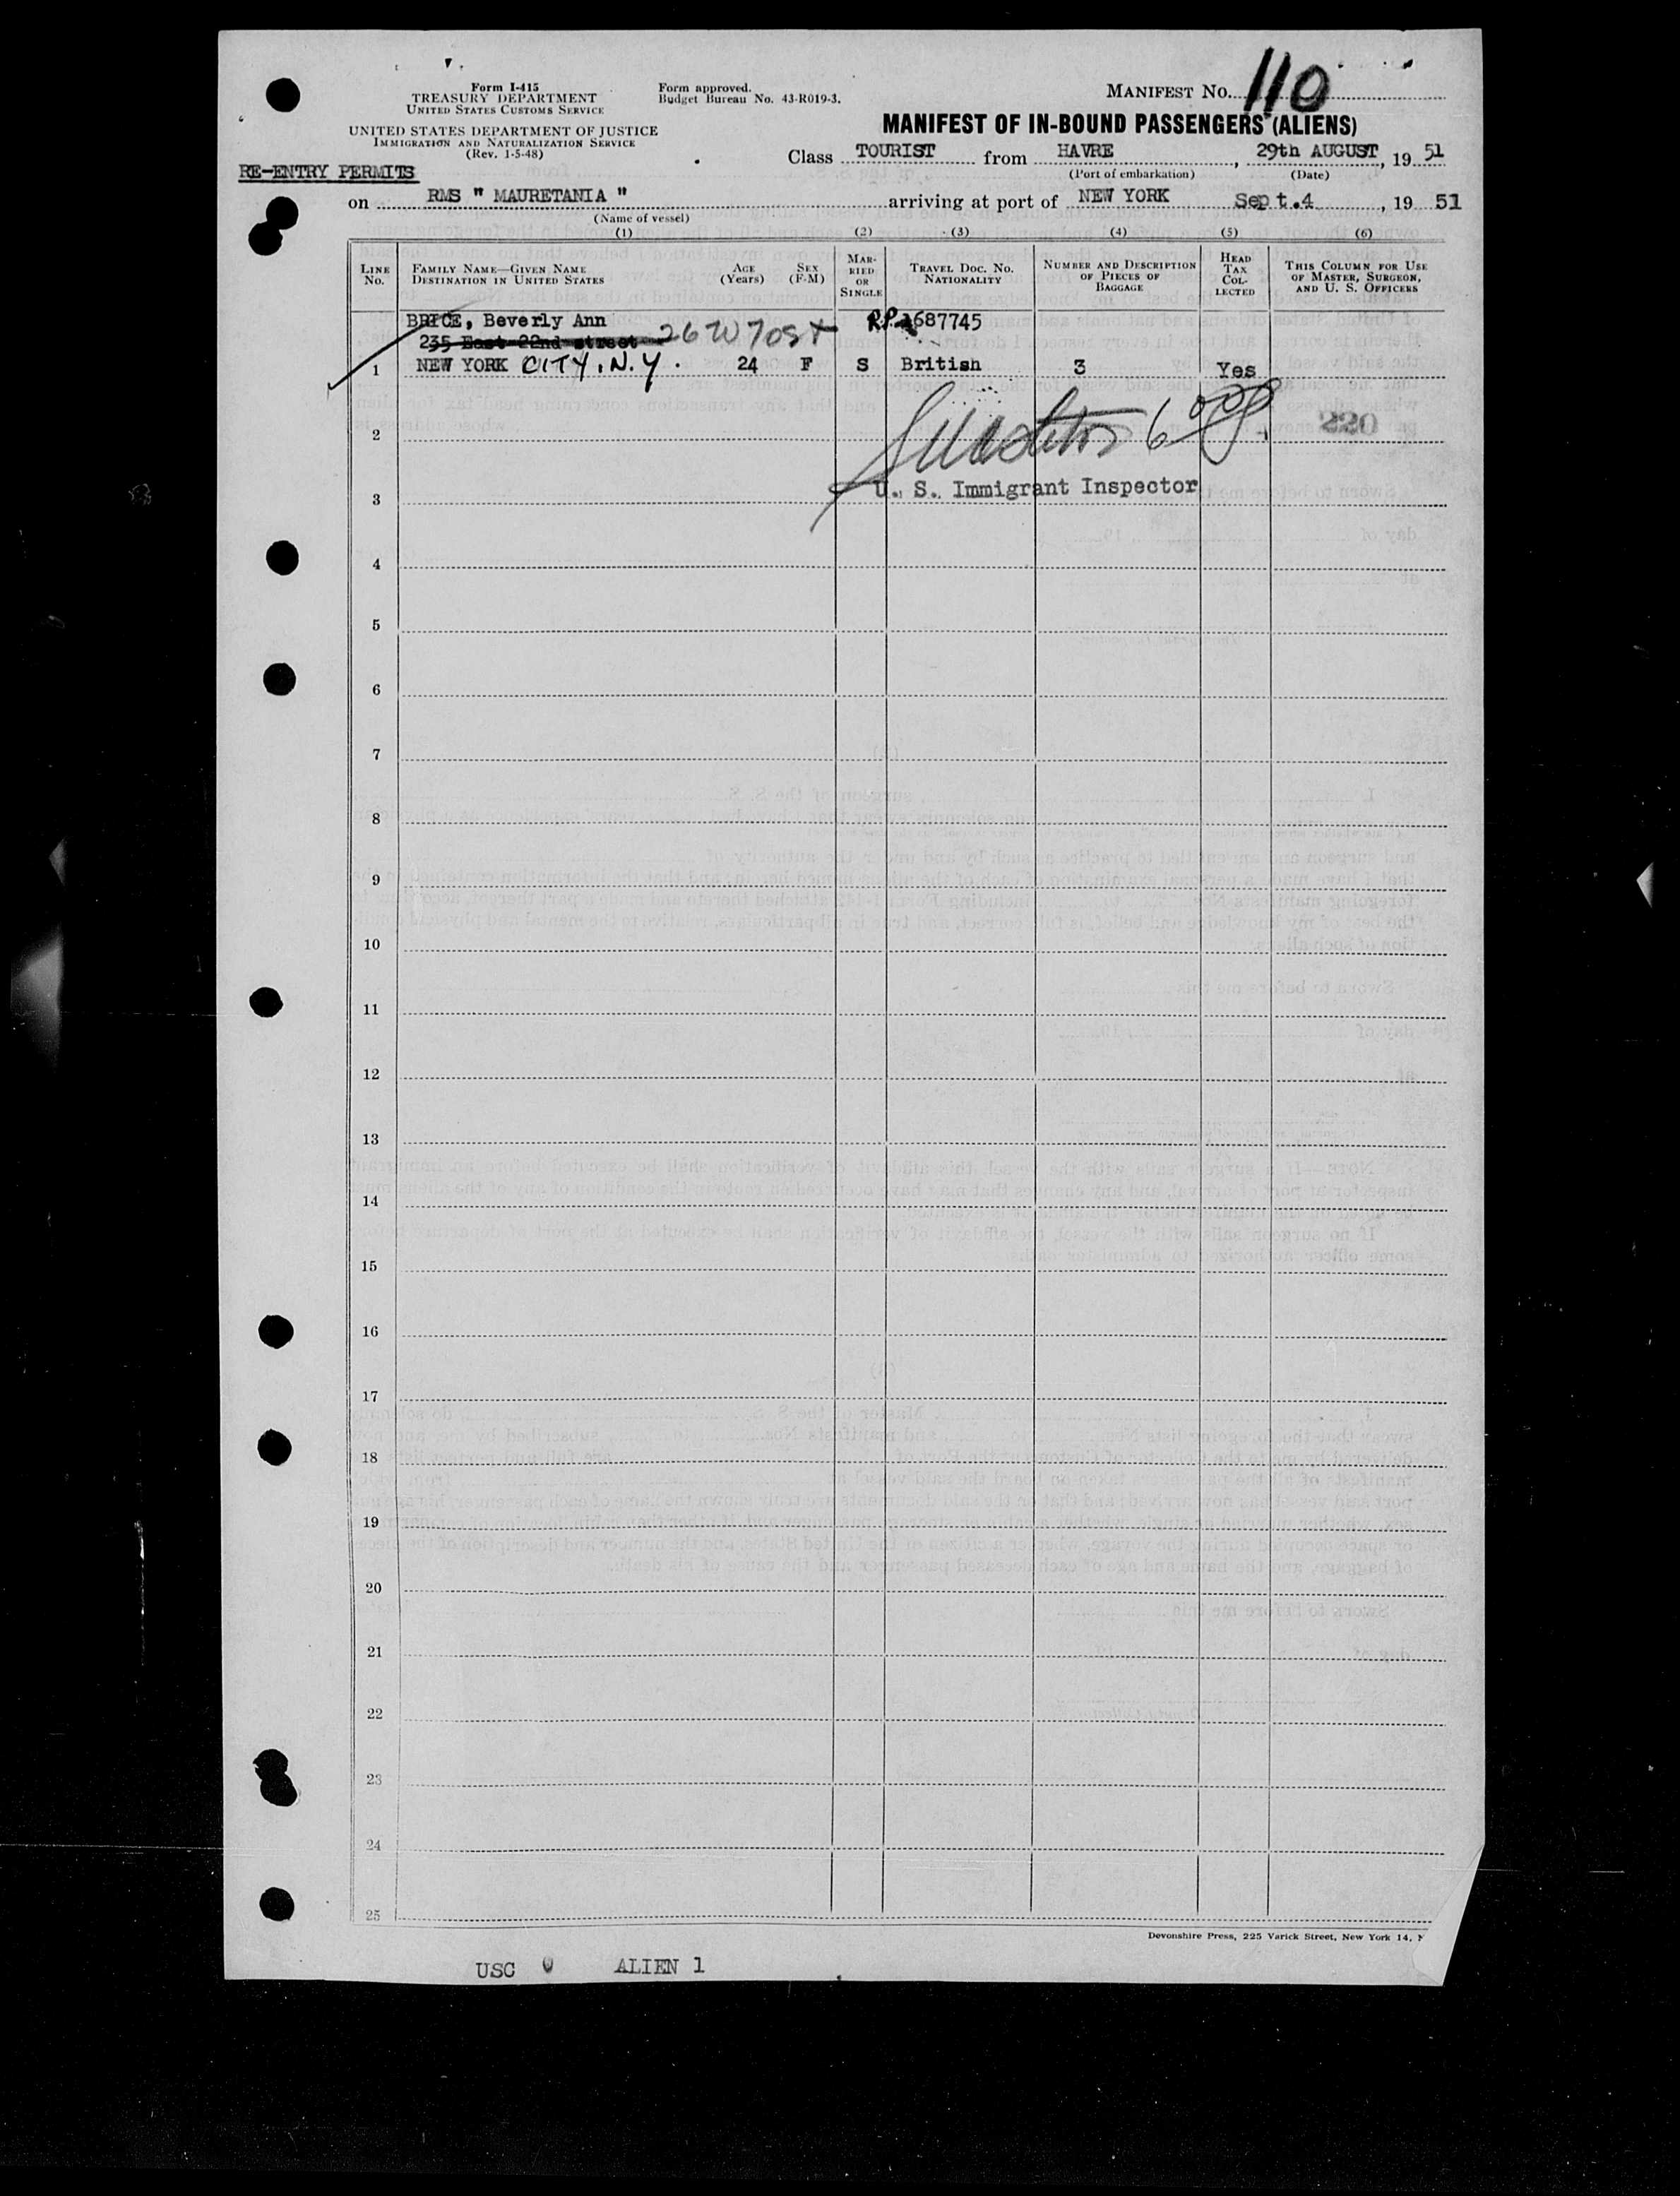 Form I-415
TREASURY DEPARTMENT
UNITED STATES CUSTOMS SERVICE
UNITED STATES DEPARTMENT OF JUSTICE
IMMIGRATION AND NATURALIZATION SERVICE
(Rev. 1-5-48)
Form approved.
Budget Bureau No. 43-R019-3.
MANIFEST No. 110
MANIFEST OF IN-BOUND PASSENGERS (ALIENS)
Class TOURIST from HAVRE, 29th AUGUST, 19 51
(Port of embarkation) (Date)
RE-ENTRY PERMITS
on RMS " MAURETANIA " arriving at port of NEW YORK Sept.4, 19 51
(Name of vessel)
(1) (2) (3) (4) (5) (6)
LINE No.
FAMILY NAME—GIVEN NAME
DESTINATION IN UNITED STATES
AGE (Years)
SEX (F-M)
MARRIED OR SINGLE
TRAVEL DOC. NO.
NATIONALITY
NUMBER AND DESCRIPTION OF PIECES OF BAGGAGE
HEAD TAX COLLECTED
THIS COLUMN FOR USE OF MASTER, SURGEON, AND U. S. OFFICERS
BRICE, Beverly Ann R.P. 1687745
235 East 22nd street 26 W 70 St
1 NEW YORK CITY, N.Y. 24 F S British 3 Yes
2 220
3 U. S. Immigrant Inspector
4
5
6
7
8
9
10
11
12
13
14
15
16
17
18
19
20
21
22
23
24
25
Devonshire Press, 225 Varick Street, New York 14,
USC 0 ALIEN 1